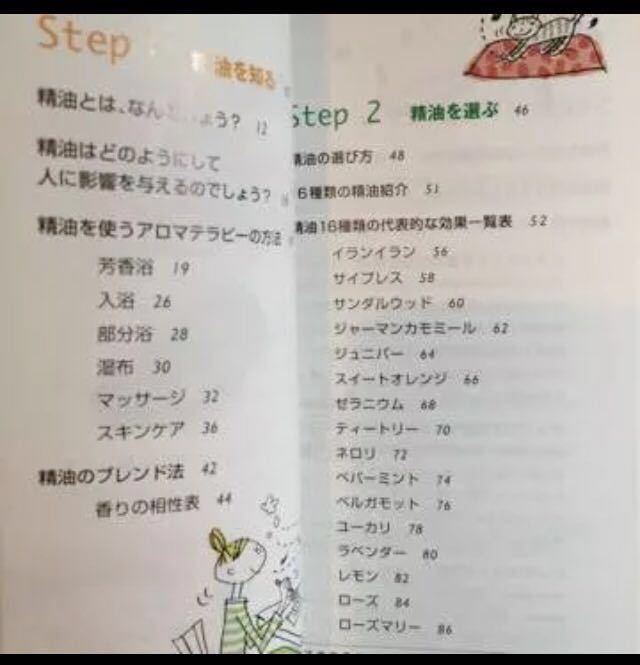 Step
油を知る
精油とは、なん　　ょう? 12
精油はどのようにして
人に影響を与えるのでしょう?
精油を使うアロマテラピーの方法
芳香浴 19
入浴 26
部分浴 28
湿布 30
マッサージ 32
スキンケア 36
精油のブレンド法 42
香りの相性表 44
Step 2 精油を選ぶ 46
精油の選び方 48
6種類の精油紹介 51
精油16種類の代表的な効果一覧表 52
イランイラン 56
サイプレス 58
サンダルウッド 60
ジャーマンカモミール 62
ジュニパー 64
スイートオレンジ 66
ゼラニウム 68
ティートリー 70
ネロリ 72
ペパーミント 74
ベルガモット 76
ユーカリ 78
ラベンダー 80
レモン 82
ローズ 84
ローズマリー 86